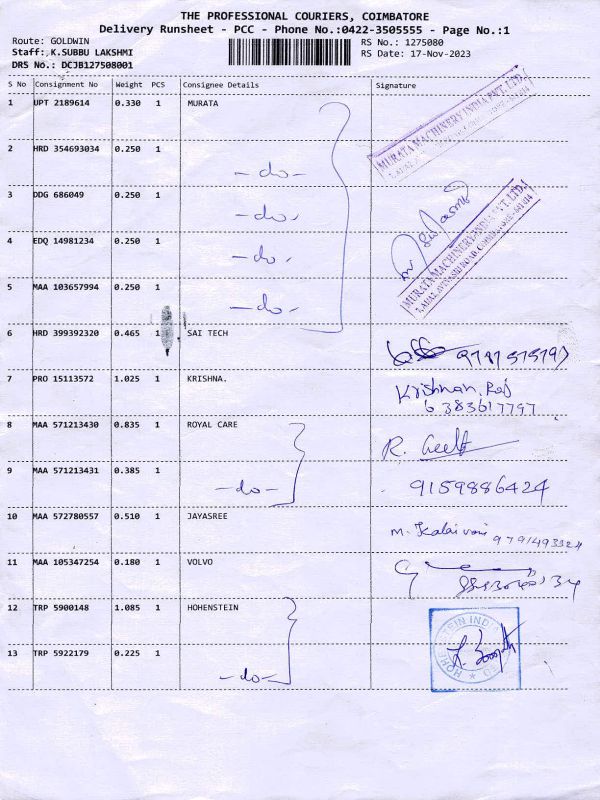 THE PROFESSIONAL COURIERS, COIMBATORE
Delivery Runsheet - PCC - Phone No.:0422-3505555 - Page No.:1
Route: GOLDWIN
Staff: K.SUBBU LAKSHMI
DRS No.: DCJB127508001
RS No.: 1275080
RS Date: 17-Nov-2023
S No Consignment No Weight PCS Consignee Details Signature
1 UPT 2189614 0.330 1 MURATA
MURATA MACHINERY INDIA PVT. LTD.
2 HRD 354693034 0.250 1 -do-
3 DDG 686049 0.250 1 -do-
4 EDQ 14981234 0.250 1 -do-
MURATA MACHINERY INDIA PVT. LTD.
5 MAA 103657994 0.250 1 -do-
6 HRD 399392320 0.465 1 SAI TECH
7 PRO 15113572 1.025 1 KRISHNA. Krishnan. Raj
6383617797
8 MAA 571213430 0.835 1 ROYAL CARE R. Geetha
9 MAA 571213431 0.385 1 -do- 9159886424
10 MAA 572780557 0.510 1 JAYASREE M. Kalaivani
11 MAA 105347254 0.180 1 VOLVO
12 TRP 5900148 1.085 1 HOHENSTEIN
13 TRP 5922179 0.225 1 -do-
HOHENSTEIN INDIA